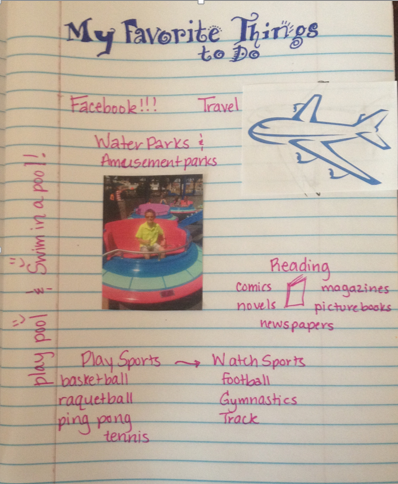 My Favorite Things
to Do
Facebook!!! Travel
Water Parks &
Amusement parks
play pool & Swim in a pool!
Reading
comics magazines
novels picture books
newspapers
Play Sports → Watch Sports
basketball football
raquetball Gymnastics
ping pong Track
tennis